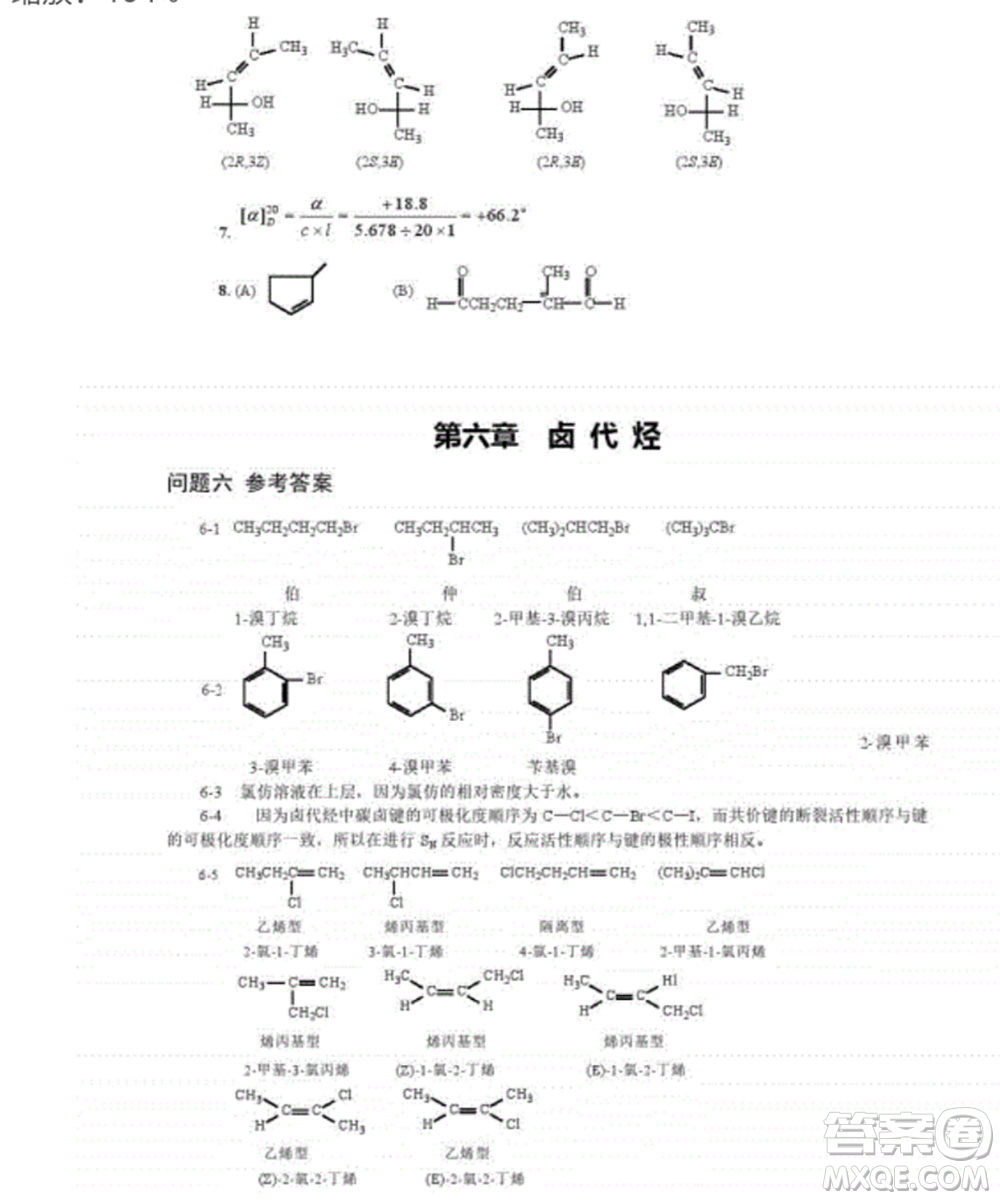 H H CH₃ CH₃
CH₃ H₃C H H
H H H H
H OH HO H H OH HO H
CH₃ CH₃ CH₃ CH₃
(2R,3Z) (2S,3E) (2R,3E) (2S,3E)
7. [α]²⁰_D = α/(c×l) = +18.8/(5.678÷20×1) = +66.2°
8. (A) (B) O CH₃ O
H—CCH₂CH₂—CH—C—H
第六章 卤代烃
问题六 参考答案
6-1 CH₃CH₂CH₂CH₂Br CH₃CH₂CHCH₃ (CH₃)₂CHCH₂Br (CH₃)₃CBr
Br
伯 仲 伯 叔
1-溴丁烷 2-溴丁烷 2-甲基-3-溴丙烷 1,1-二甲基-1-溴乙烷
CH₃ CH₃ CH₃
6-2 Br Br CH₂Br
Br
2-溴甲苯
3-溴甲苯 4-溴甲苯 苄基溴
6-3 氯仿溶液在上层,因为氯仿的相对密度大于水。
6-4 因为卤代烃中碳卤键的可极化度顺序为 C—Cl<C—Br<C—I,而共价键的断裂活性顺序与键
的可极化度顺序一致,所以在进行 S_N 反应时,反应活性顺序与键的极性顺序相反。
6-5 CH₃CH₂C=CH₂ CH₃CHCH=CH₂ ClCH₂CH₂CH=CH₂ (CH₃)₂C=CHCl
Cl Cl
乙烯型 烯丙基型 隔离型 乙烯型
2-氯-1-丁烯 3-氯-1-丁烯 4-氯-1-丁烯 2-甲基-1-氯丙烯
CH₃—C=CH₂ H₃C CH₂Cl H₃C HI
CH₂Cl C=C C=C
H H H CH₂Cl
烯丙基型 烯丙基型 烯丙基型
2-甲基-3-氯丙烯 (Z)-1-氯-2-丁烯 (E)-1-氯-2-丁烯
CH₃ Cl CH₃ CH₃
C=C C=C
H CH₃ H Cl
乙烯型 乙烯型
(Z)-2-氯-2-丁烯 (E)-2-氯-2-丁烯
答案圈
MXQE.COM